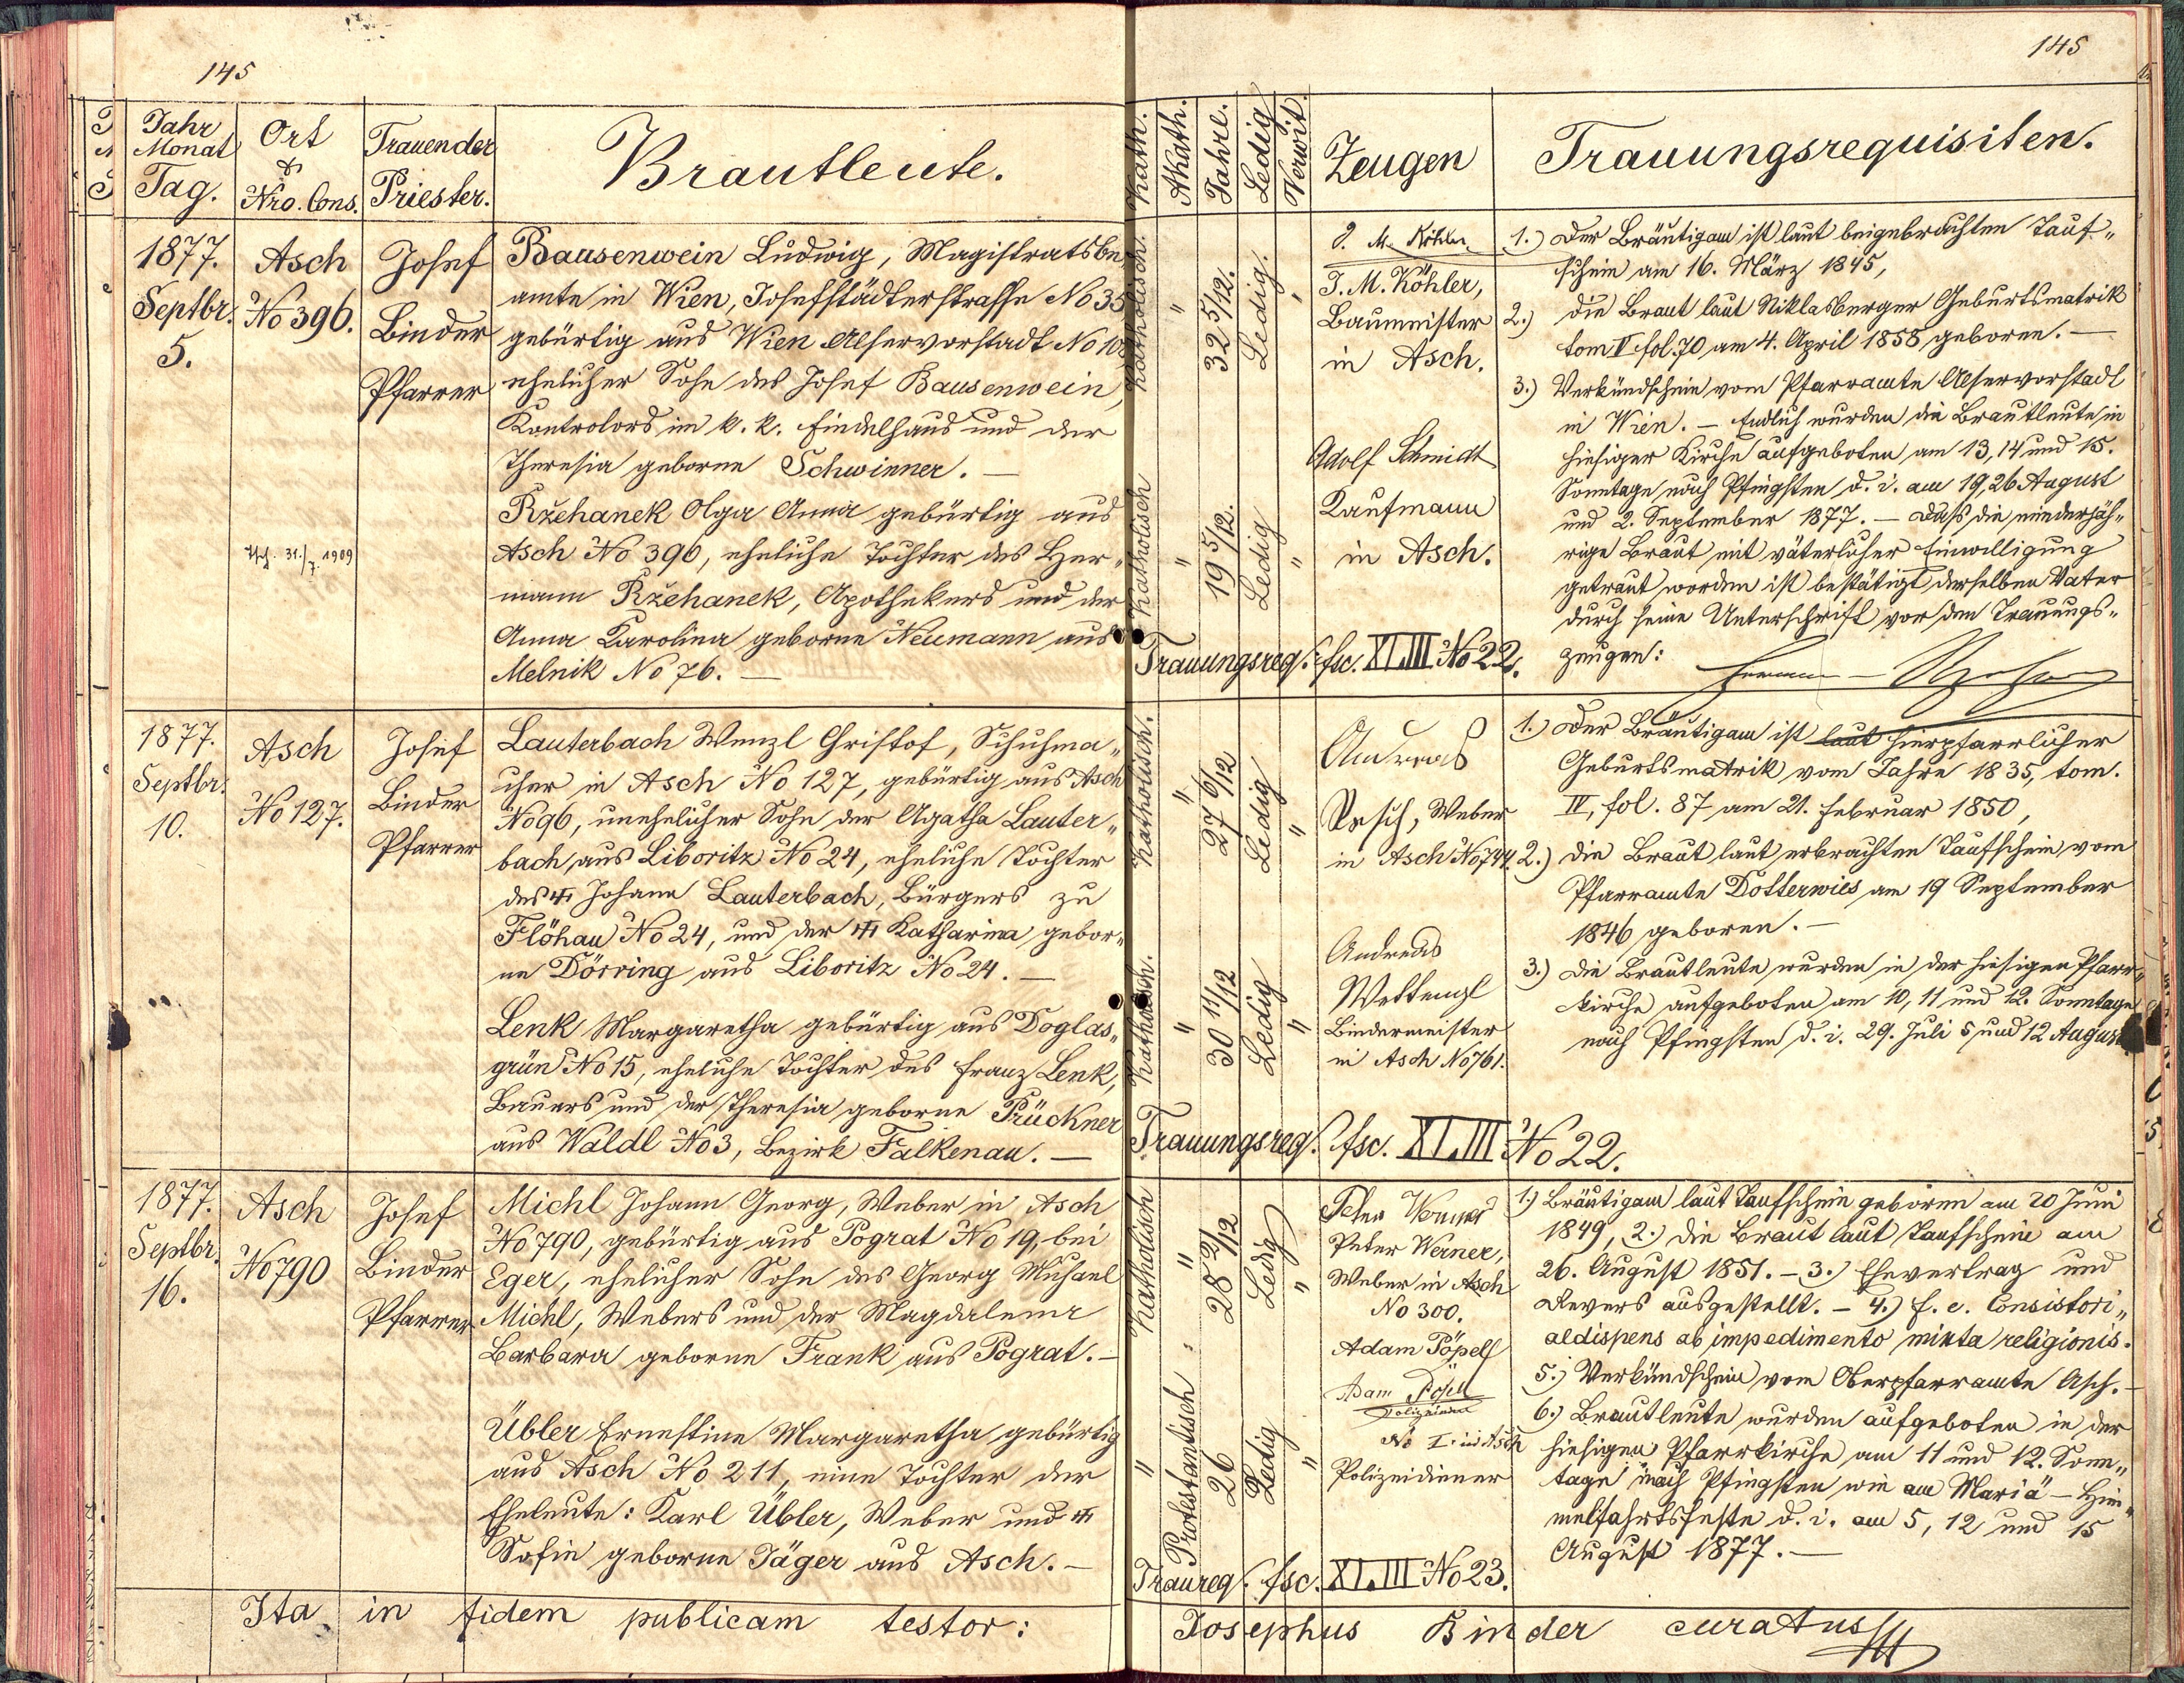 145
Jahr
Monat
Tag.
Ort
&
Nro. Cons.
Trauender
Priester.
Brautleute.
1877.
Septbr.
5.
Asch
No 396.
Josef
Binder
Pfarrer
Bausenwein Ludwig, Magistratsbe
amte in Wien, Josefstädterstrasse No 35
gebürtig aus Wien Alservorstadt No 108
ehelicher Sohn des Josef Bausenwein,
Kontrolors im k. k. Findelhaus und der
Theresia geborne Schwinner. —
Ržehanek Olga Anna gebürtig aus
Asch No 396, eheliche Tochter des Her„
mann Ržehanek, Apothekers und der
Anna Karolina geborne Neumann aus
Melnik No 76. —
31./7. 1909
1877.
Septbr.
10.
Asch
No 127.
Josef
Binder
Pfarrer
Lauterbach Wenzl Christof, Schuhma„
cher in Asch No 127, gebürtig aus Asch
No 96, unehelicher Sohn der Agatha Lauter„
bach, aus Liboritz No 24, eheliche Tochter
des ⚕ Johann Lauterbach, Bürgers zu
Flöhau No 24, und der ⚕ Katharina gebor„
ne Dörring aus Liboritz No 24. —
Lenk Margaretha gebürtig aus Doglas„
grün No 15, eheliche Tochter des Franz Lenk,
Bauers und der Theresia geborne Prückner
aus Waldl No 3, Bezirk Falkenau. —
1877.
Septbr.
16.
Asch
No 790
Josef
Binder
Pfarrer
Michl Johann Georg, Weber in Asch
No 790, gebürtig aus Pograt No 19, bei
Eger, ehelicher Sohn des Georg Michael
Michl, Webers und der Magdalena
Barbara geborne Frank aus Pograt. —
Übler Ernestine Margaretha gebürtig
aus Asch No 211, eine Tochter der
Eheleute: Karl Übler, Weber und
Sofie geborne Jäger aus Asch. —
Ita in fidem publicam testor:
145
Kath.
Akath.
Jahre.
Ledig
Verwit.
Zeugen
Trauungsrequisiten.
Katholisch.
"
32 5/12.
Ledig.
"
J. M. Köhler
J. M. Köhler,
Baumeister
in Asch.
Katholisch
"
19 5/12.
Ledig
"
Adolf Schmidt
Kaufmann
in Asch.
Trauungsreq. fsc. XLIII No 22.
1.) Der Bräutigam ist laut beigebrachten Tauf„
schein am 16. März 1845,
2.) die Braut laut Niklasberger Geburtsmatrik
tom V fol. 70 am 4. April 1858 geboren. —
3.) Verkündschein vom Pfarramte Alservorstadt
in Wien. — Endlich wurden die Brautleute in
hiesiger Kirche aufgeboten am 13, 14 und 15.
Sonntage nach Pfingsten d. i. am 19, 26 August
und 2. September 1877. — Dass die minderjäh„
rige Braut mit väterlicher Einwilligung
getraut worden ist bestätigt derselben Vater
durch seine Unterschrift vor den Trauungs„
zeugen:
Katholisch.
"
27 6/12
Ledig
"
Andreas
Resch, Weber
in Asch No 744.
Katholisch.
"
30 11/12
Ledig
"
Andreas
Wettengl
Bindermeister
in Asch No 761.
Trauungsreq. fsc. XLIII No 22.
1.) Der Bräutigam ist laut hierpfarrlicher
Geburtsmatrik vom Jahre 1835, tom.
IV, fol. 87 am 21. Februar 1850,
2.) die Braut laut erbrachten Taufschein vom
Pfarramte Dotterwies am 19 September
1846 geboren. —
3.) Die Brautleute wurden in der hiesigen Pfarr„
kirche aufgeboten am 10, 11 und 12. Sonntage
nach Pfingsten d. i. 29. Juli 5 und 12 August
Katholisch
"
28 2/12
Ledig
"
Peter Werner
Peter Werner,
Weber in Asch
No 300.
"
Protestantisch
26
Ledig
"
Adam Pöpell
Adam Pöpell
Polizeidiener
No I. in Asch
Polizeidiener
Traureq. fsc. XLIII No 23.
1.) Bräutigam laut Taufschein geboren am 20 Juni
1849, 2.) die Braut laut Taufschein am
26. August 1851. — 3.) Ehevertrag und
Revers ausgestellt. — 4.) f. e. Consistori„
aldispens ab impedimento mixta religionis.
5.) Verkündschein vom Oberpfarramte Asch. —
6.) Brautleute wurden aufgeboten in der
hiesigen Pfarrkirche am 11 und 12. Sonn„
tage nach Pfingsten wie am Mariä-Him„
melfahrtsfeste d. i. am 5, 12 und 15
August 1877. —
Josephus Binder curatus